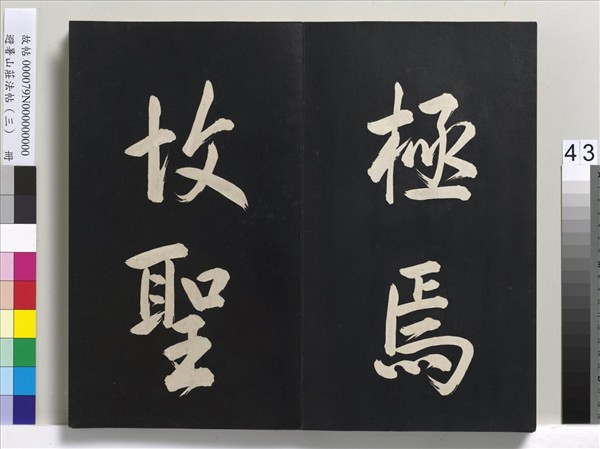 極焉
故聖
故帖 000079N000000000
避暑山莊法帖（三） 冊
43